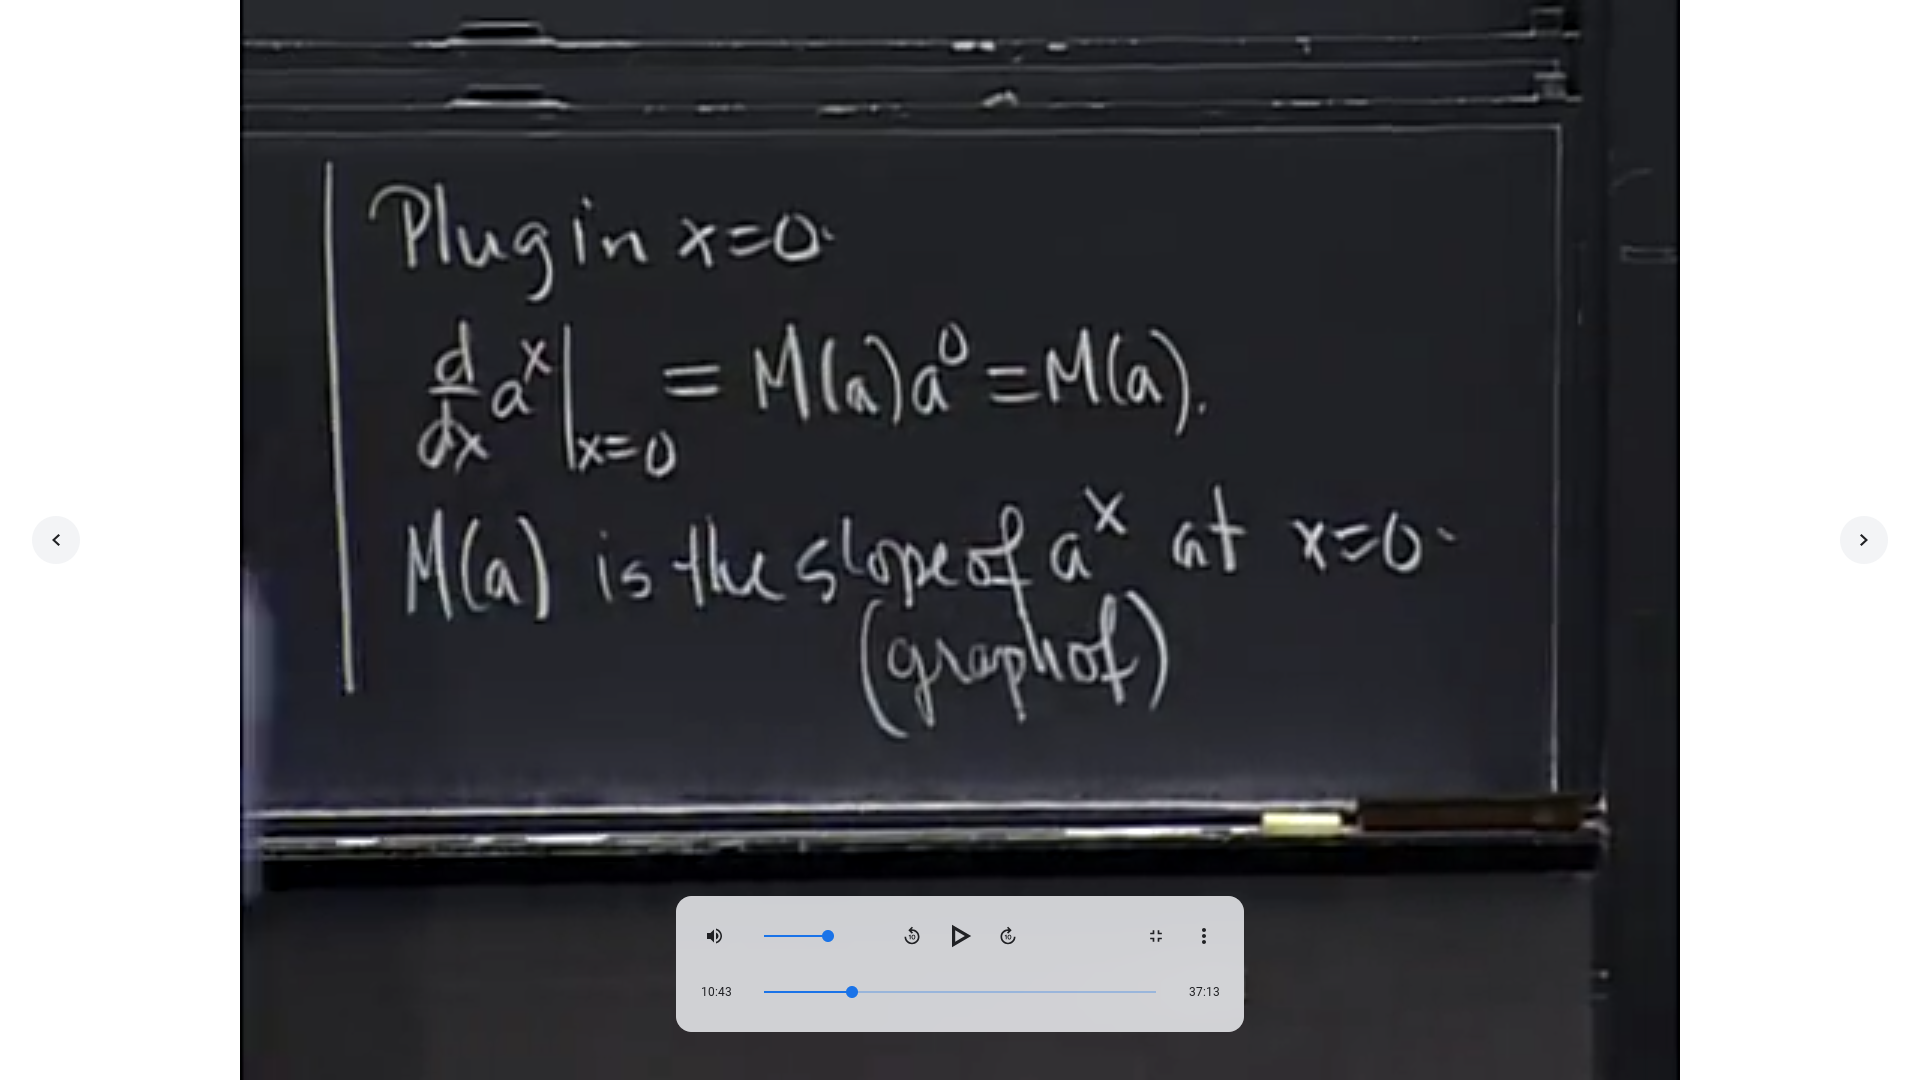 Plug in x=0.
d/dx a^x |_{x=0} = M(a)a^0 = M(a).
M(a) is the slope of a^x at x=0.
(graph of)
10
10
10:43
37:13